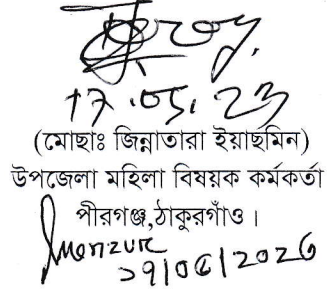 17.05.23
(মোছাঃ জিন্নাতারা ইয়াছমিন)
উপজেলা মহিলা বিষয়ক কর্মকর্তা
পীরগঞ্জ,ঠাকুরগাঁও।
Monzur